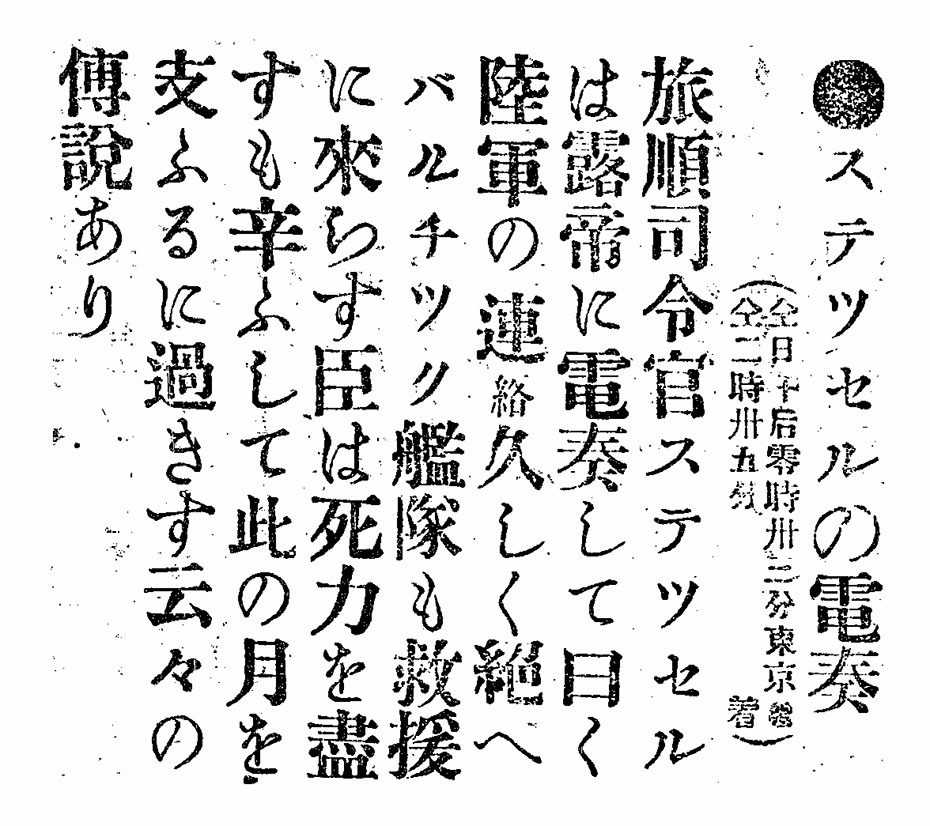 ●ステツセルの電奏
(仝日午后零時卅二分東京發
仝二時卅五分着)
旅順司令官ステツセル
は露帝に電奏して曰く
陸軍の連絡久しく絶へ
バルチツク艦隊も救援
に來らす臣は死力を盡
すも辛ふして此の月を
支ふるに過きす云々の
傳說あり